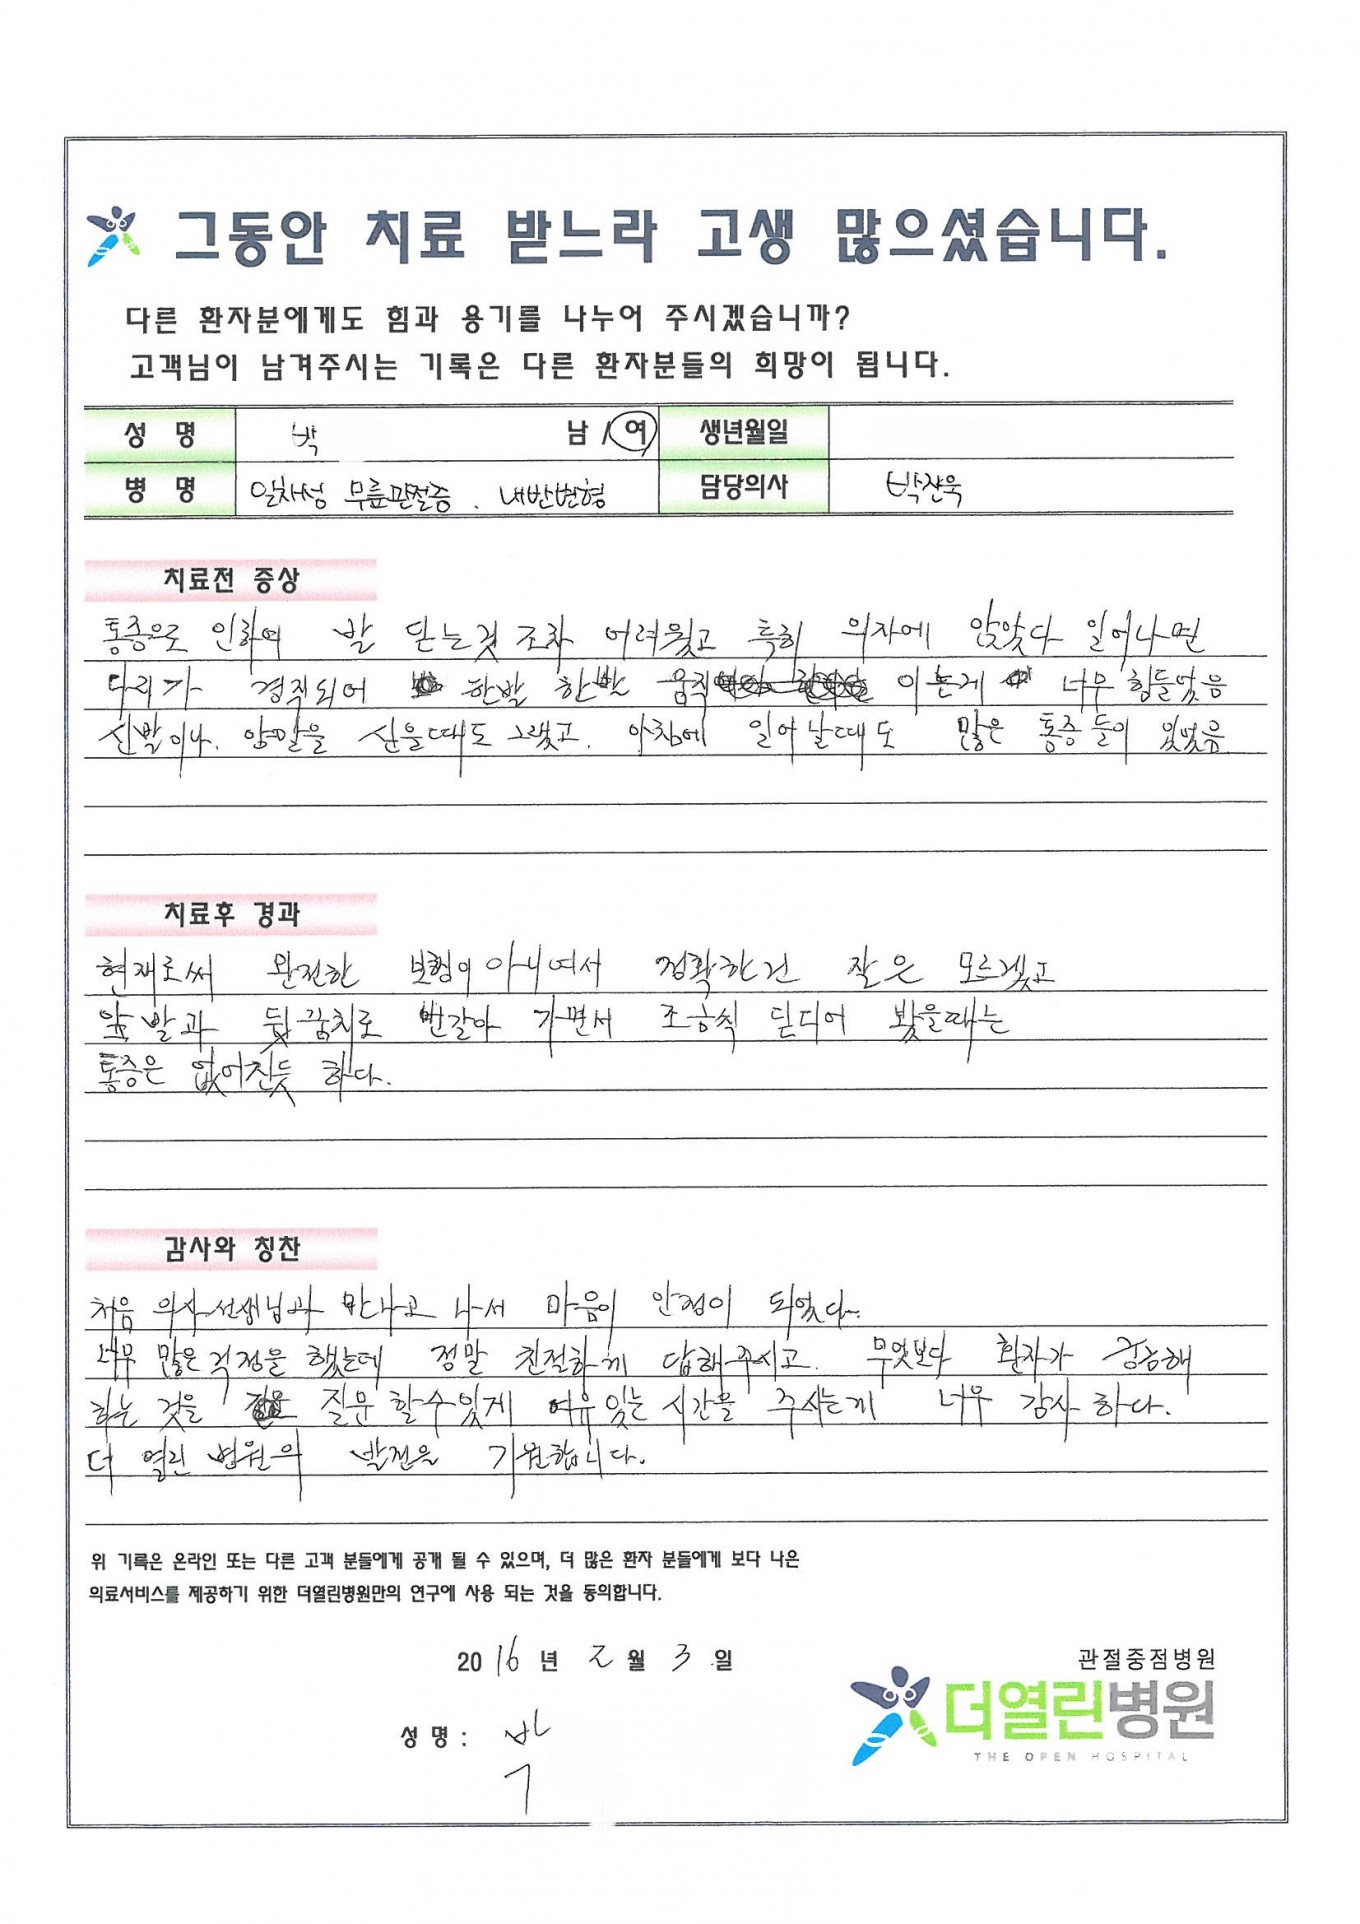 그동안 치료 받느라 고생 많으셨습니다.
다른 환자분에게도 힘과 용기를 나누어 주시겠습니까?
고객님이 남겨주시는 기록은 다른 환자분들의 희망이 됩니다.
성 명 박 남 / 여 생년월일
병 명 일차성 무릎관절증 . 내반변형 담당의사 박찬욱
치료전 증상
통증으로 인하여 발 딛는것 조차 어려웠고 특히 의자에 앉았다 일어나면
다리가 경직되어 한발 한발 움직 이는게 너무 힘들었음
신발이나. 양말을 신을때도 그랬고. 아침에 일어날때도 많은 통증들이 있었음
치료후 경과
현재로써 완전한 보행이 아니여서 정확한건 잘은 모르겠고
앞발과 뒮꿈치로 번갈아 가면서 조금씩 딛디어 봤을때는
통증은 없어진듯 하다.
감사와 칭찬
처음 의사선생님과 만나고 나서 마음이 안정이 되었다.
너무 많은 걱정을 했는데 정말 친절하게 답해주시고. 무엇보다 환자가 궁금해
하는 것을 질문 할수있게 여유있는 시간을 주시는게 너무 감사하다.
더 열린 병원의 발전을 기원합니다.
위 기록은 온라인 또는 다른 고객 분들에게 공개 될 수 있으며, 더 많은 환자 분들에게 보다 나은
의료서비스를 제공하기 위한 더열린병원만의 연구에 사용 되는 것을 동의합니다.
2016 년 2 월 3 일
관절중점병원
더열린병원
THE OPEN HOSPITAL
성 명 : 박